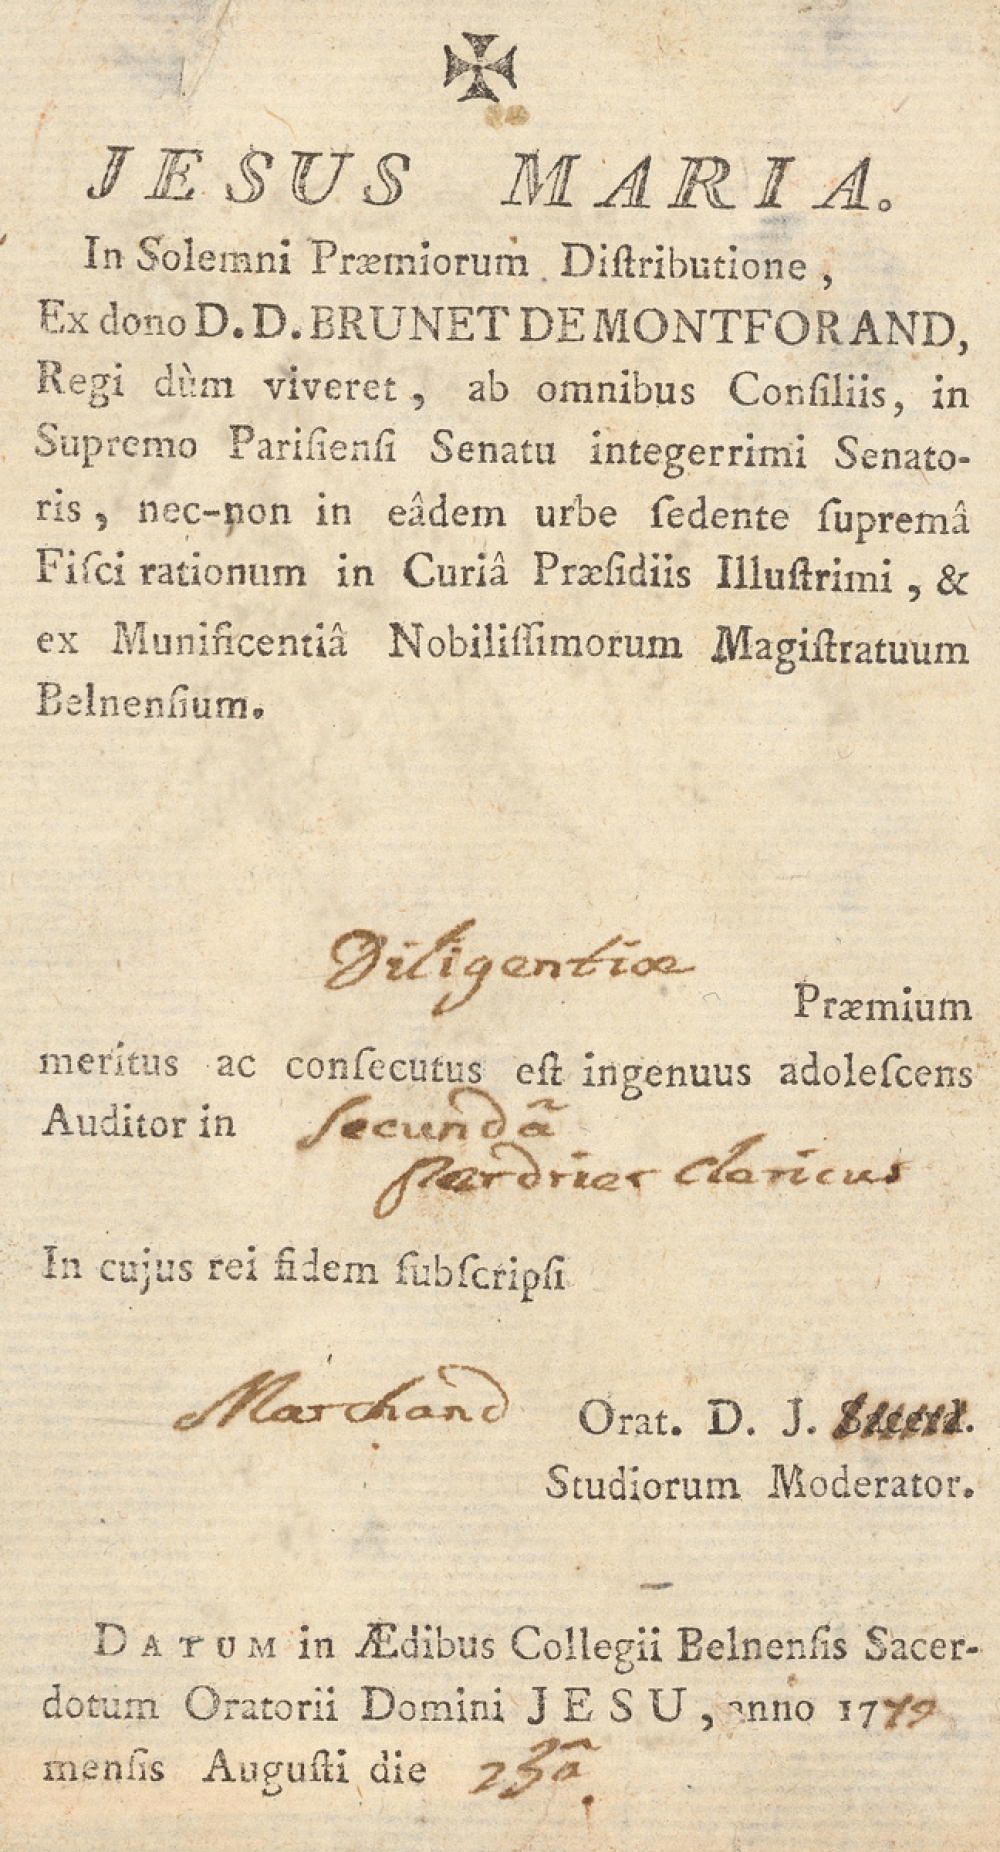 JESUS MARIA.
In Solemni Præmiorum Diſtributione,
Ex dono D.D. BRUNET DE MONTFORAND,
Regi dùm viveret, ab omnibus Conſiliis, in
Supremo Pariſienſi Senatu integerrimi Senato-
ris, nec-non in eâdem urbe ſedente ſupremâ
Fiſci rationum in Curiâ Præſidiis Illuſtrimi, &
ex Munificentiâ Nobiliſſimorum Magiſtratuum
Belnenſium.
Diligentiæ
Præmium
meritus ac conſecutus eſt ingenuus adoleſcens
Auditor in Secundã
Perdrier Clericus
In cujus rei fidem ſubſcripſi
Marchand Orat. D. J. Sacerd.
Studiorum Moderator.
DATUM in Ædibus Collegii Belnenſis Sacer-
dotum Oratorii Domini JESU, anno 1779
menſis Auguſti die 23ã.